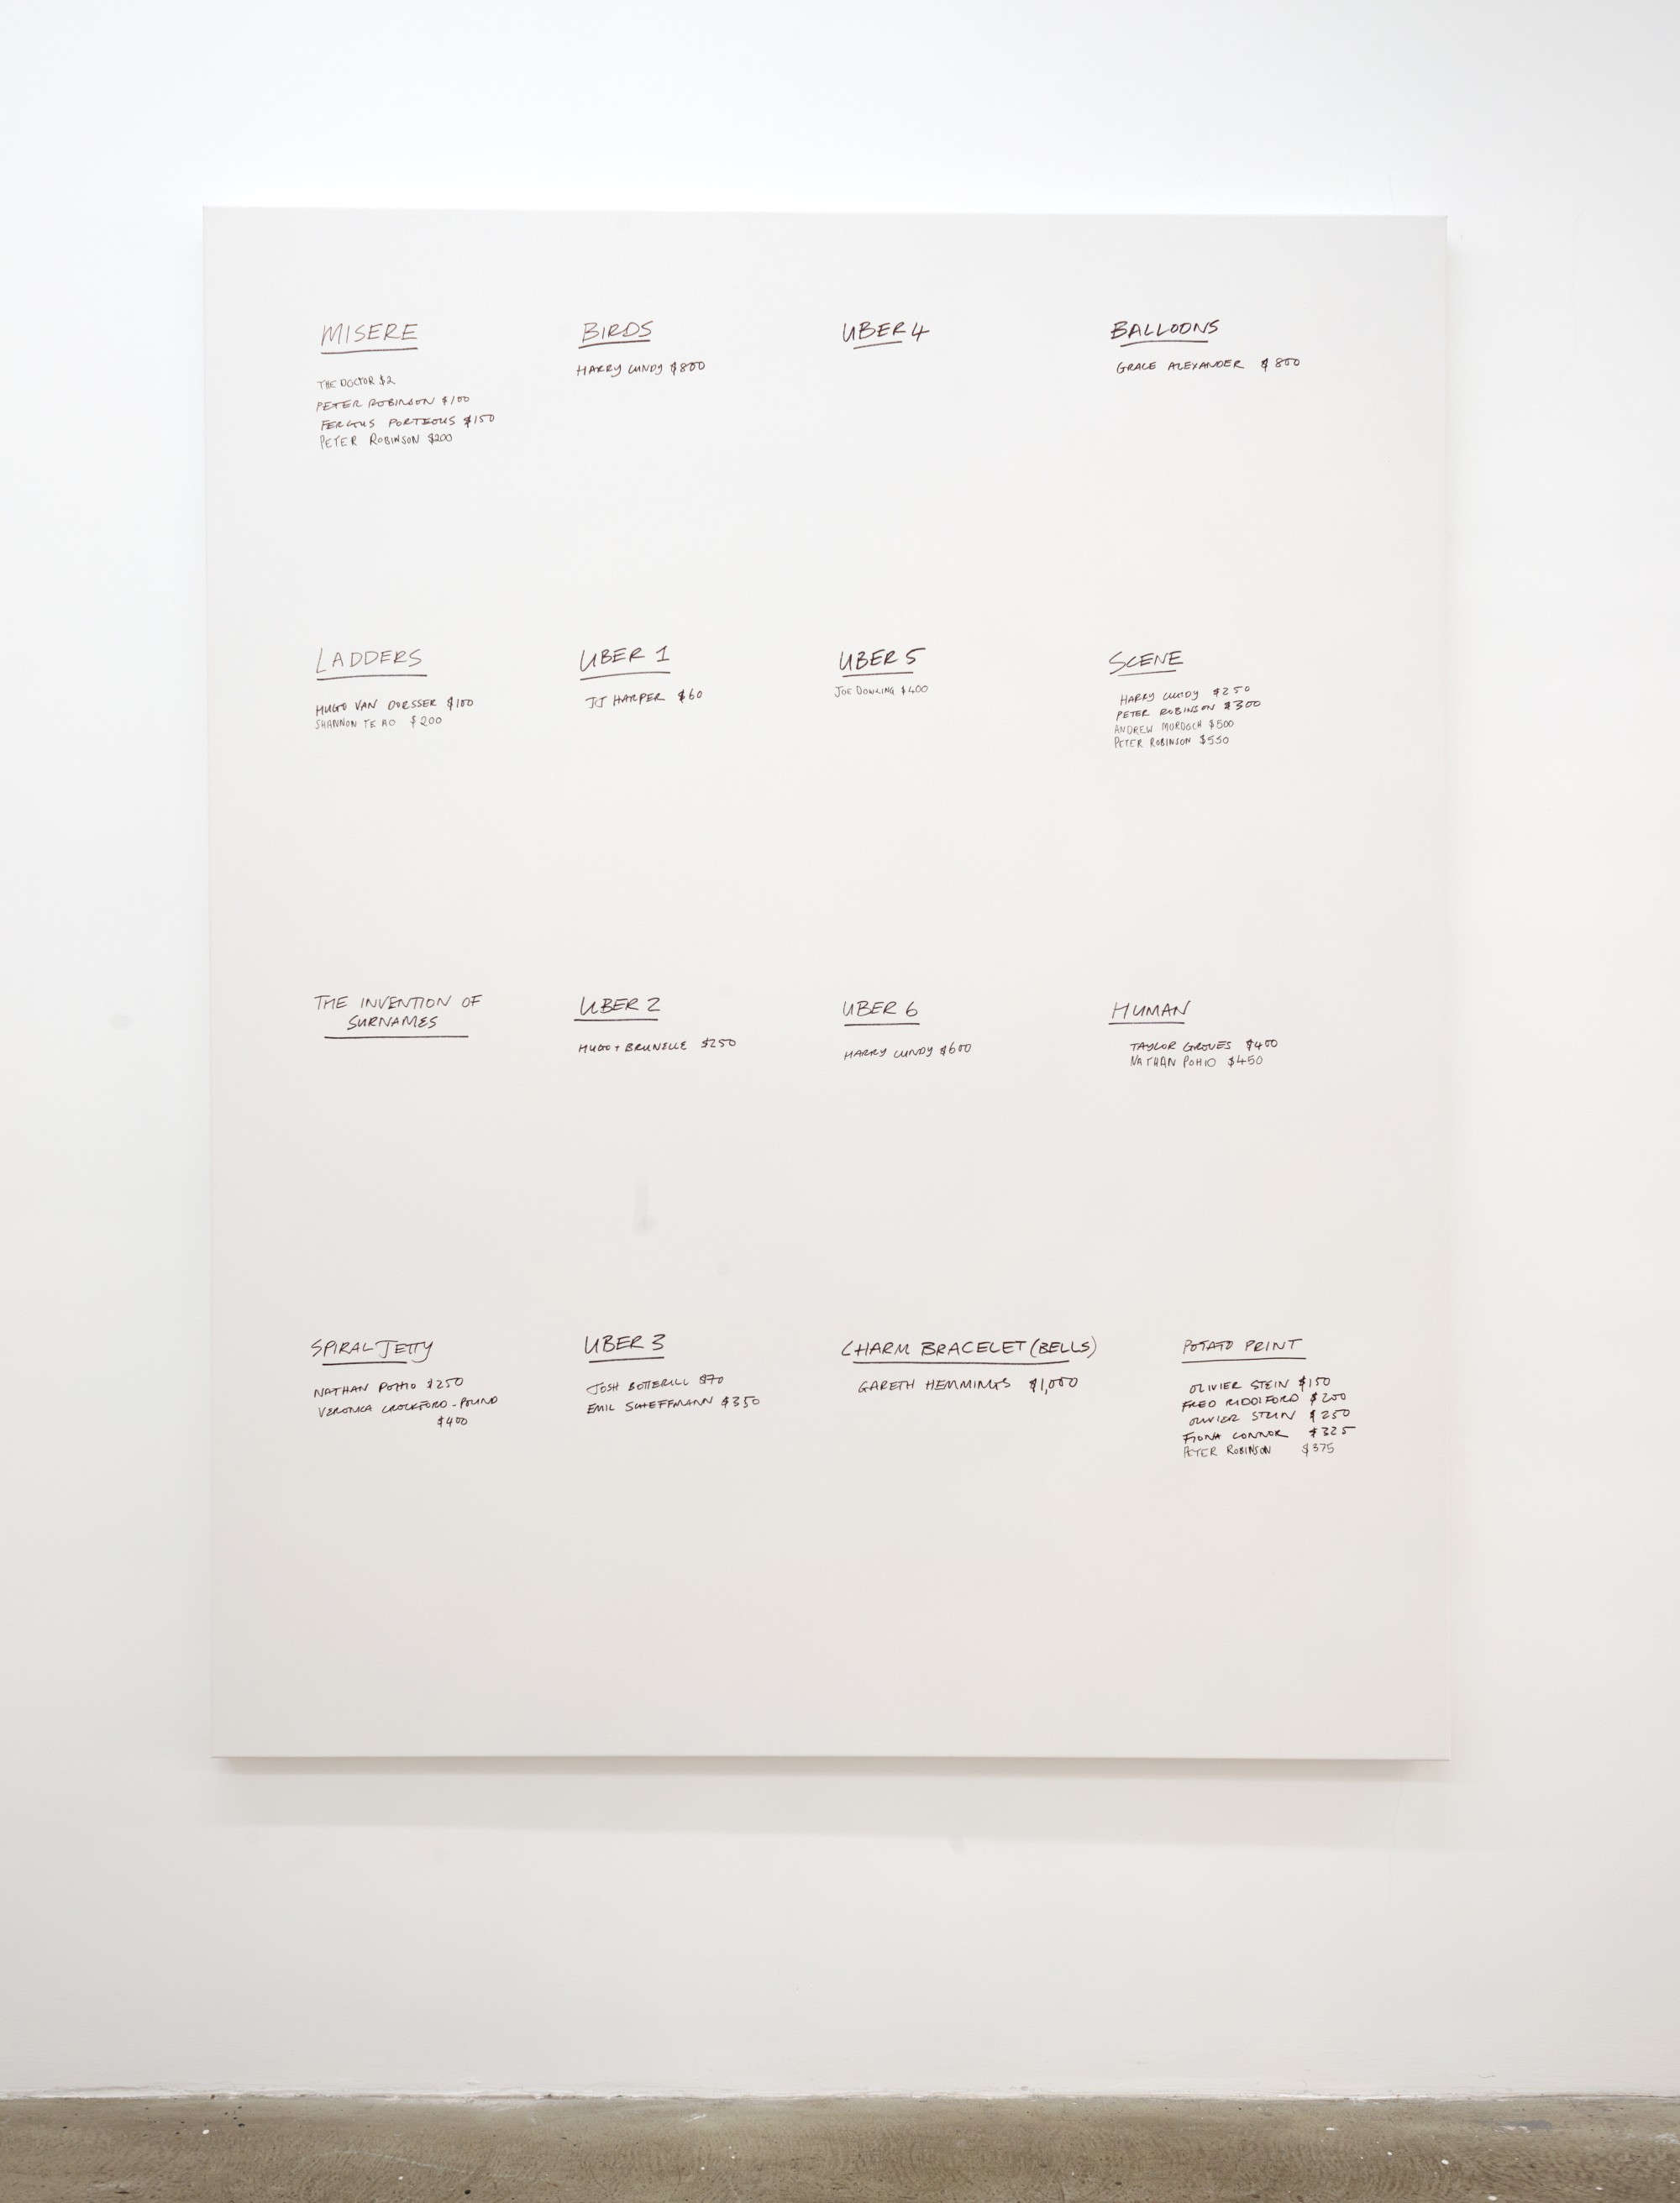 MISERE
THE DOCTOR $2
PETER ROBINSON $100
FERGUS PORTEOUS $150
PETER ROBINSON $200
BIRDS
HARRY LUNDY $800
UBER 4
BALLOONS
GRACE ALEXANDER $800
LADDERS
HUGO VAN DORSSER $100
SHANNON TE AO $200
UBER 1
JJ HARPER $60
UBER 5
JOE DOWLING $400
SCENE
HARRY LUNDY $250
PETER ROBINSON $300
ANDREW MURDOCH $500
PETER ROBINSON $550
THE INVENTION OF
SURNAMES
UBER 2
HUGO + BRUNELLE $250
UBER 6
HARRY LUNDY $600
HUMAN
TAYLOR GROVES $400
NATHAN POHIO $450
SPIRAL JETTY
NATHAN POHIO $250
VERONICA CROCKFORD-POUND
$400
UBER 3
JOSH BOTTERILL $70
EMIL SCHEFFMANN $350
CHARM BRACELET (BELLS)
GARETH HEMMINGS $1,000
POTATO PRINT
OLIVIER STEIN $150
FRED RIDDIFORD $200
OLIVIER STEIN $250
FIONA CONNOR $325
PETER ROBINSON $375